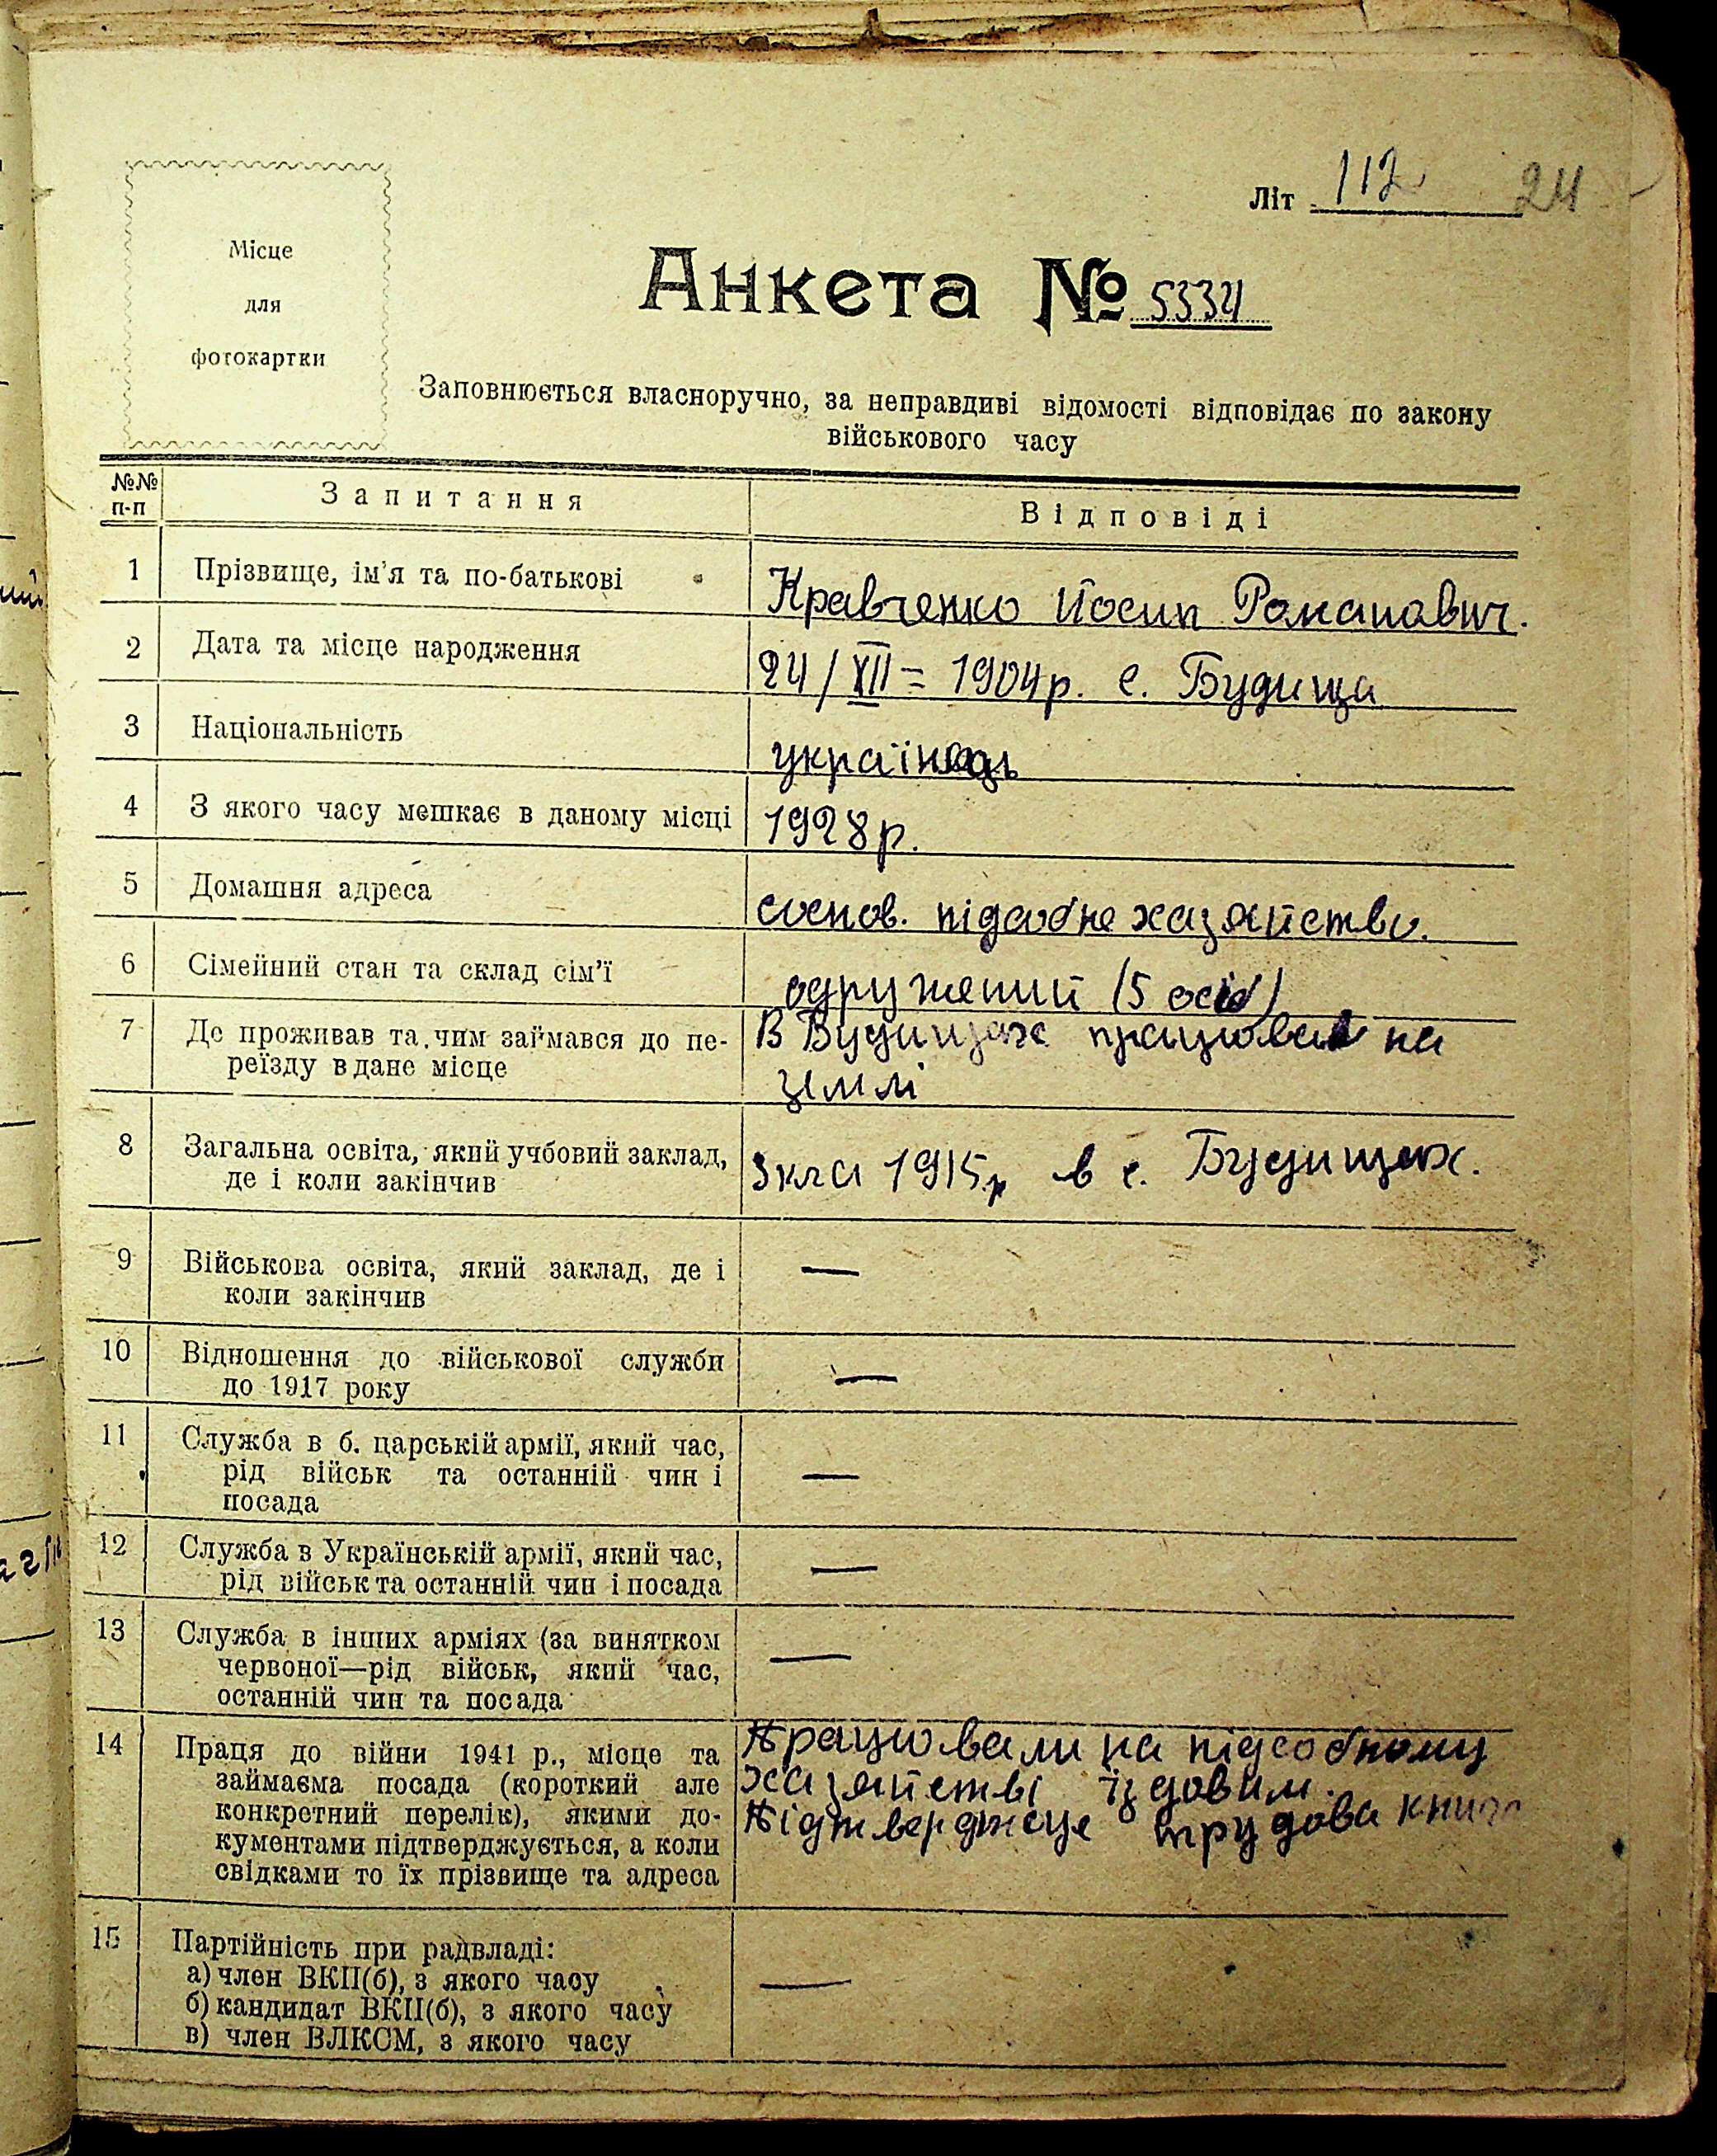 Літ 112 24
Місце
для
фотокартки
Анкета № 5334
Заповнюється власноручно, за неправдиві відомості відповідає по закону
військового часу
№№ п-п Запитання Відповіді
1 Прізвище, ім'я та по-батькові Кравченко Йосип Романович.
2 Дата та місце народження 24/XII = 1904р. с. Будища
3 Національність українець
4 З якого часу мешкає в даному місці 1928р.
5 Домашня адреса соснов. підсобне хазяйство.
6 Сімейний стан та склад сім'ї одружений (5 осіб)
7 Де проживав та чим займався до пе- В Будищах працював на
реїзду в дане місце землі
8 Загальна освіта, який учбовий заклад, 3 кла 1915р в с. Будищах.
де і коли закінчив
9 Військова освіта, який заклад, де і —
коли закінчив
10 Відношення до військової служби —
до 1917 року
11 Служба в б. царській армії, який час, —
рід військ та останній чин і
посада
12 Служба в Українській армії, який час, —
рід військ та останній чин і посада
13 Служба в інших арміях (за винятком —
червоної—рід військ, який час,
останній чин та посада
14 Праця до війни 1941 р., місце та Працювали на підсобному
займаєма посада (короткий але хазяйстві їздовим.
конкретний перелік), якими до- Підтверджеце трудова книга
кументами підтверджується, а коли
свідками то їх прізвище та адреса
15 Партійність при радвладі: —
а) член ВКП(б), з якого часу
б) кандидат ВКП(б), з якого часу
в) член ВЛКСМ, з якого часу